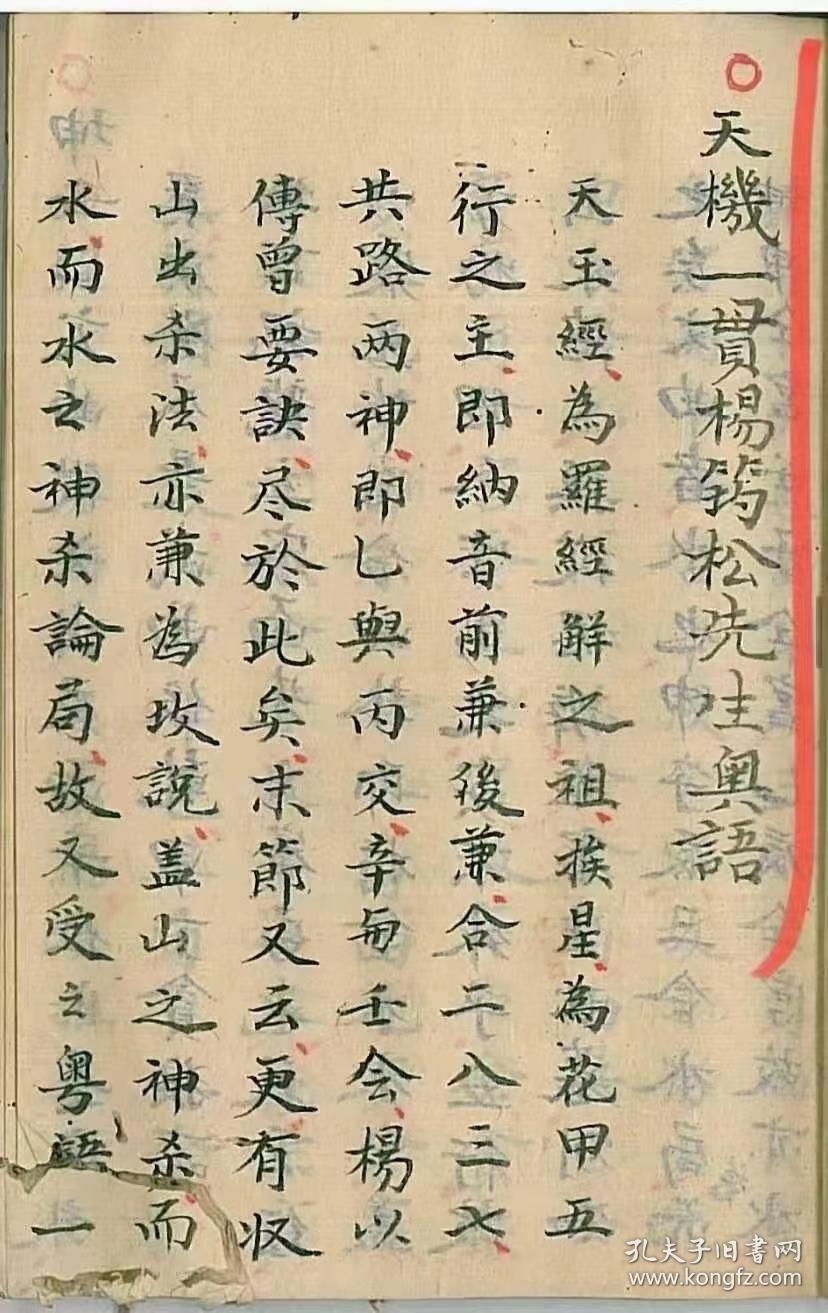 天機一貫楊筠松先生奧語
天玉經為羅經觧之祖挨星為花甲五
行之主即納音前兼後兼合二八三七
共路兩神即乙與丙交辛与壬会楊以
傳曾要訣尽於此矣末節又云更有収
山出杀法亦兼為坟說盖山之神杀而
水而水之神杀論局故又受之粤語一
孔夫子旧书网
www.kongfz.com